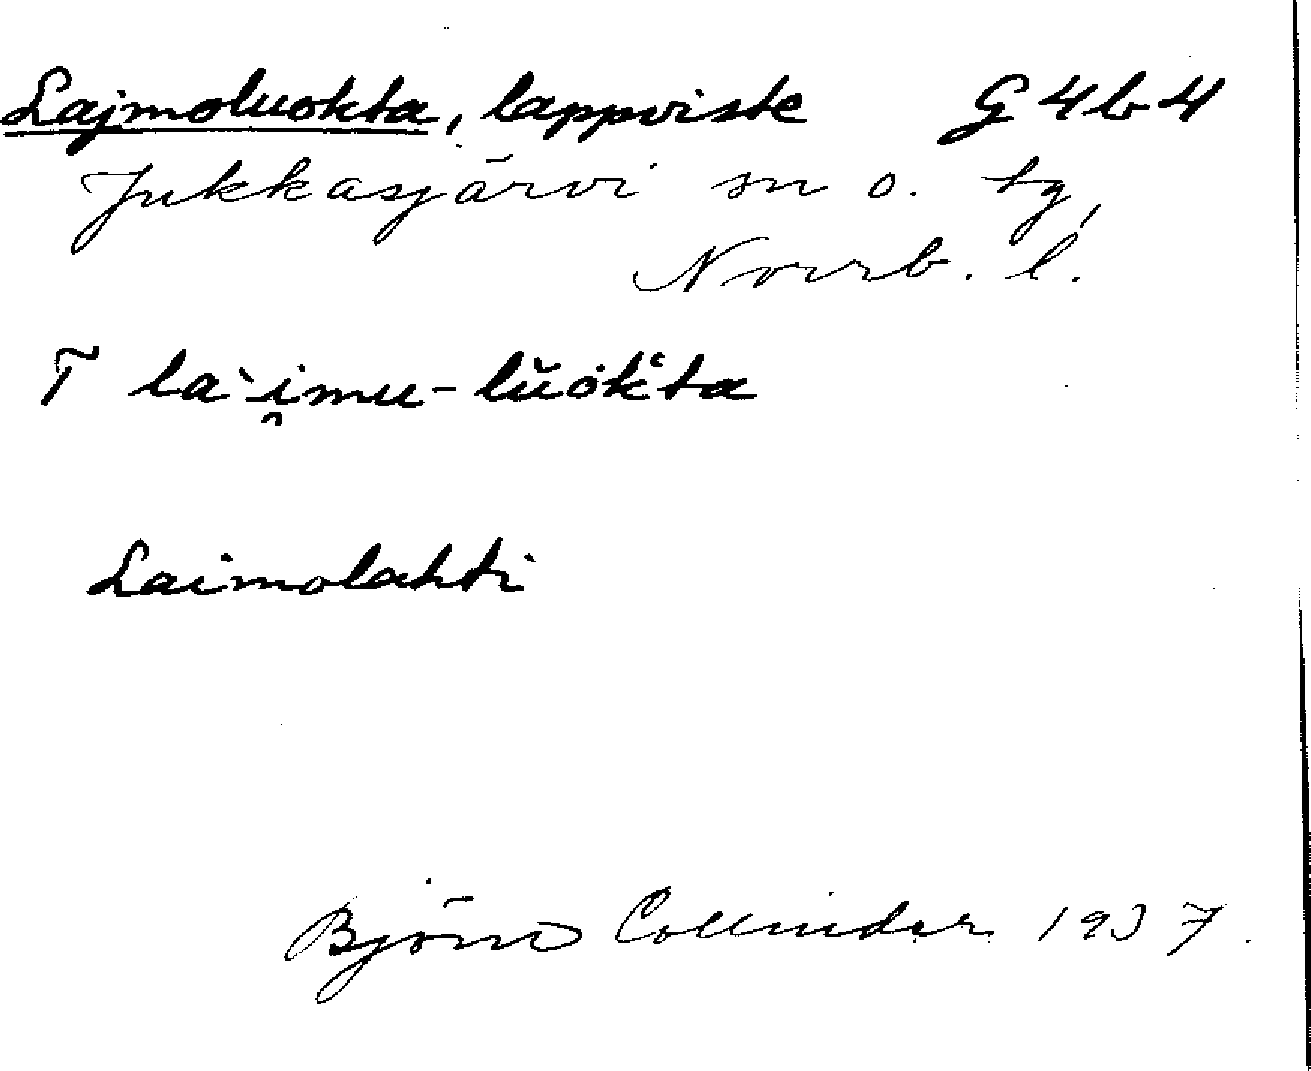 Lajmoluokta, lappviste G 4 b 4
Jukkasjärvi sn o. tg,
Norrb. l.
T la`i̯mu-lŭok‘ta
Laimolahti
Björn Collinder 1937.